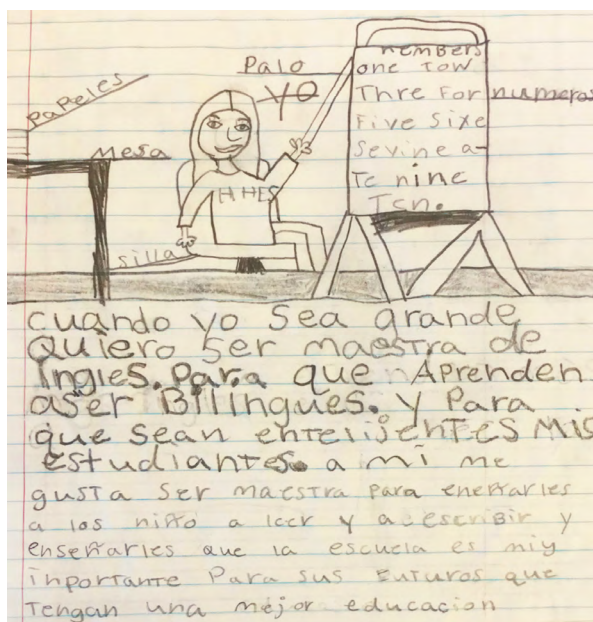 Papeles
mesa
silla
Palo
yo
HHES
nembers
one Tow
Thre For
Five Sixe
Sevine a-
Te nine
Ten.
numeros
cuando yo sea grande
quiero ser maestra de
ingles. Para que Aprenden
aser Bilingues. y Para
que sean entelijentes mis
estudiantes. a mi me
gusta ser maestra para eneñarles
a los niño a leer y a escribir y
enseñarles que la escuela es miy
inportante Para sus futuros que
tengan una mejor educacion